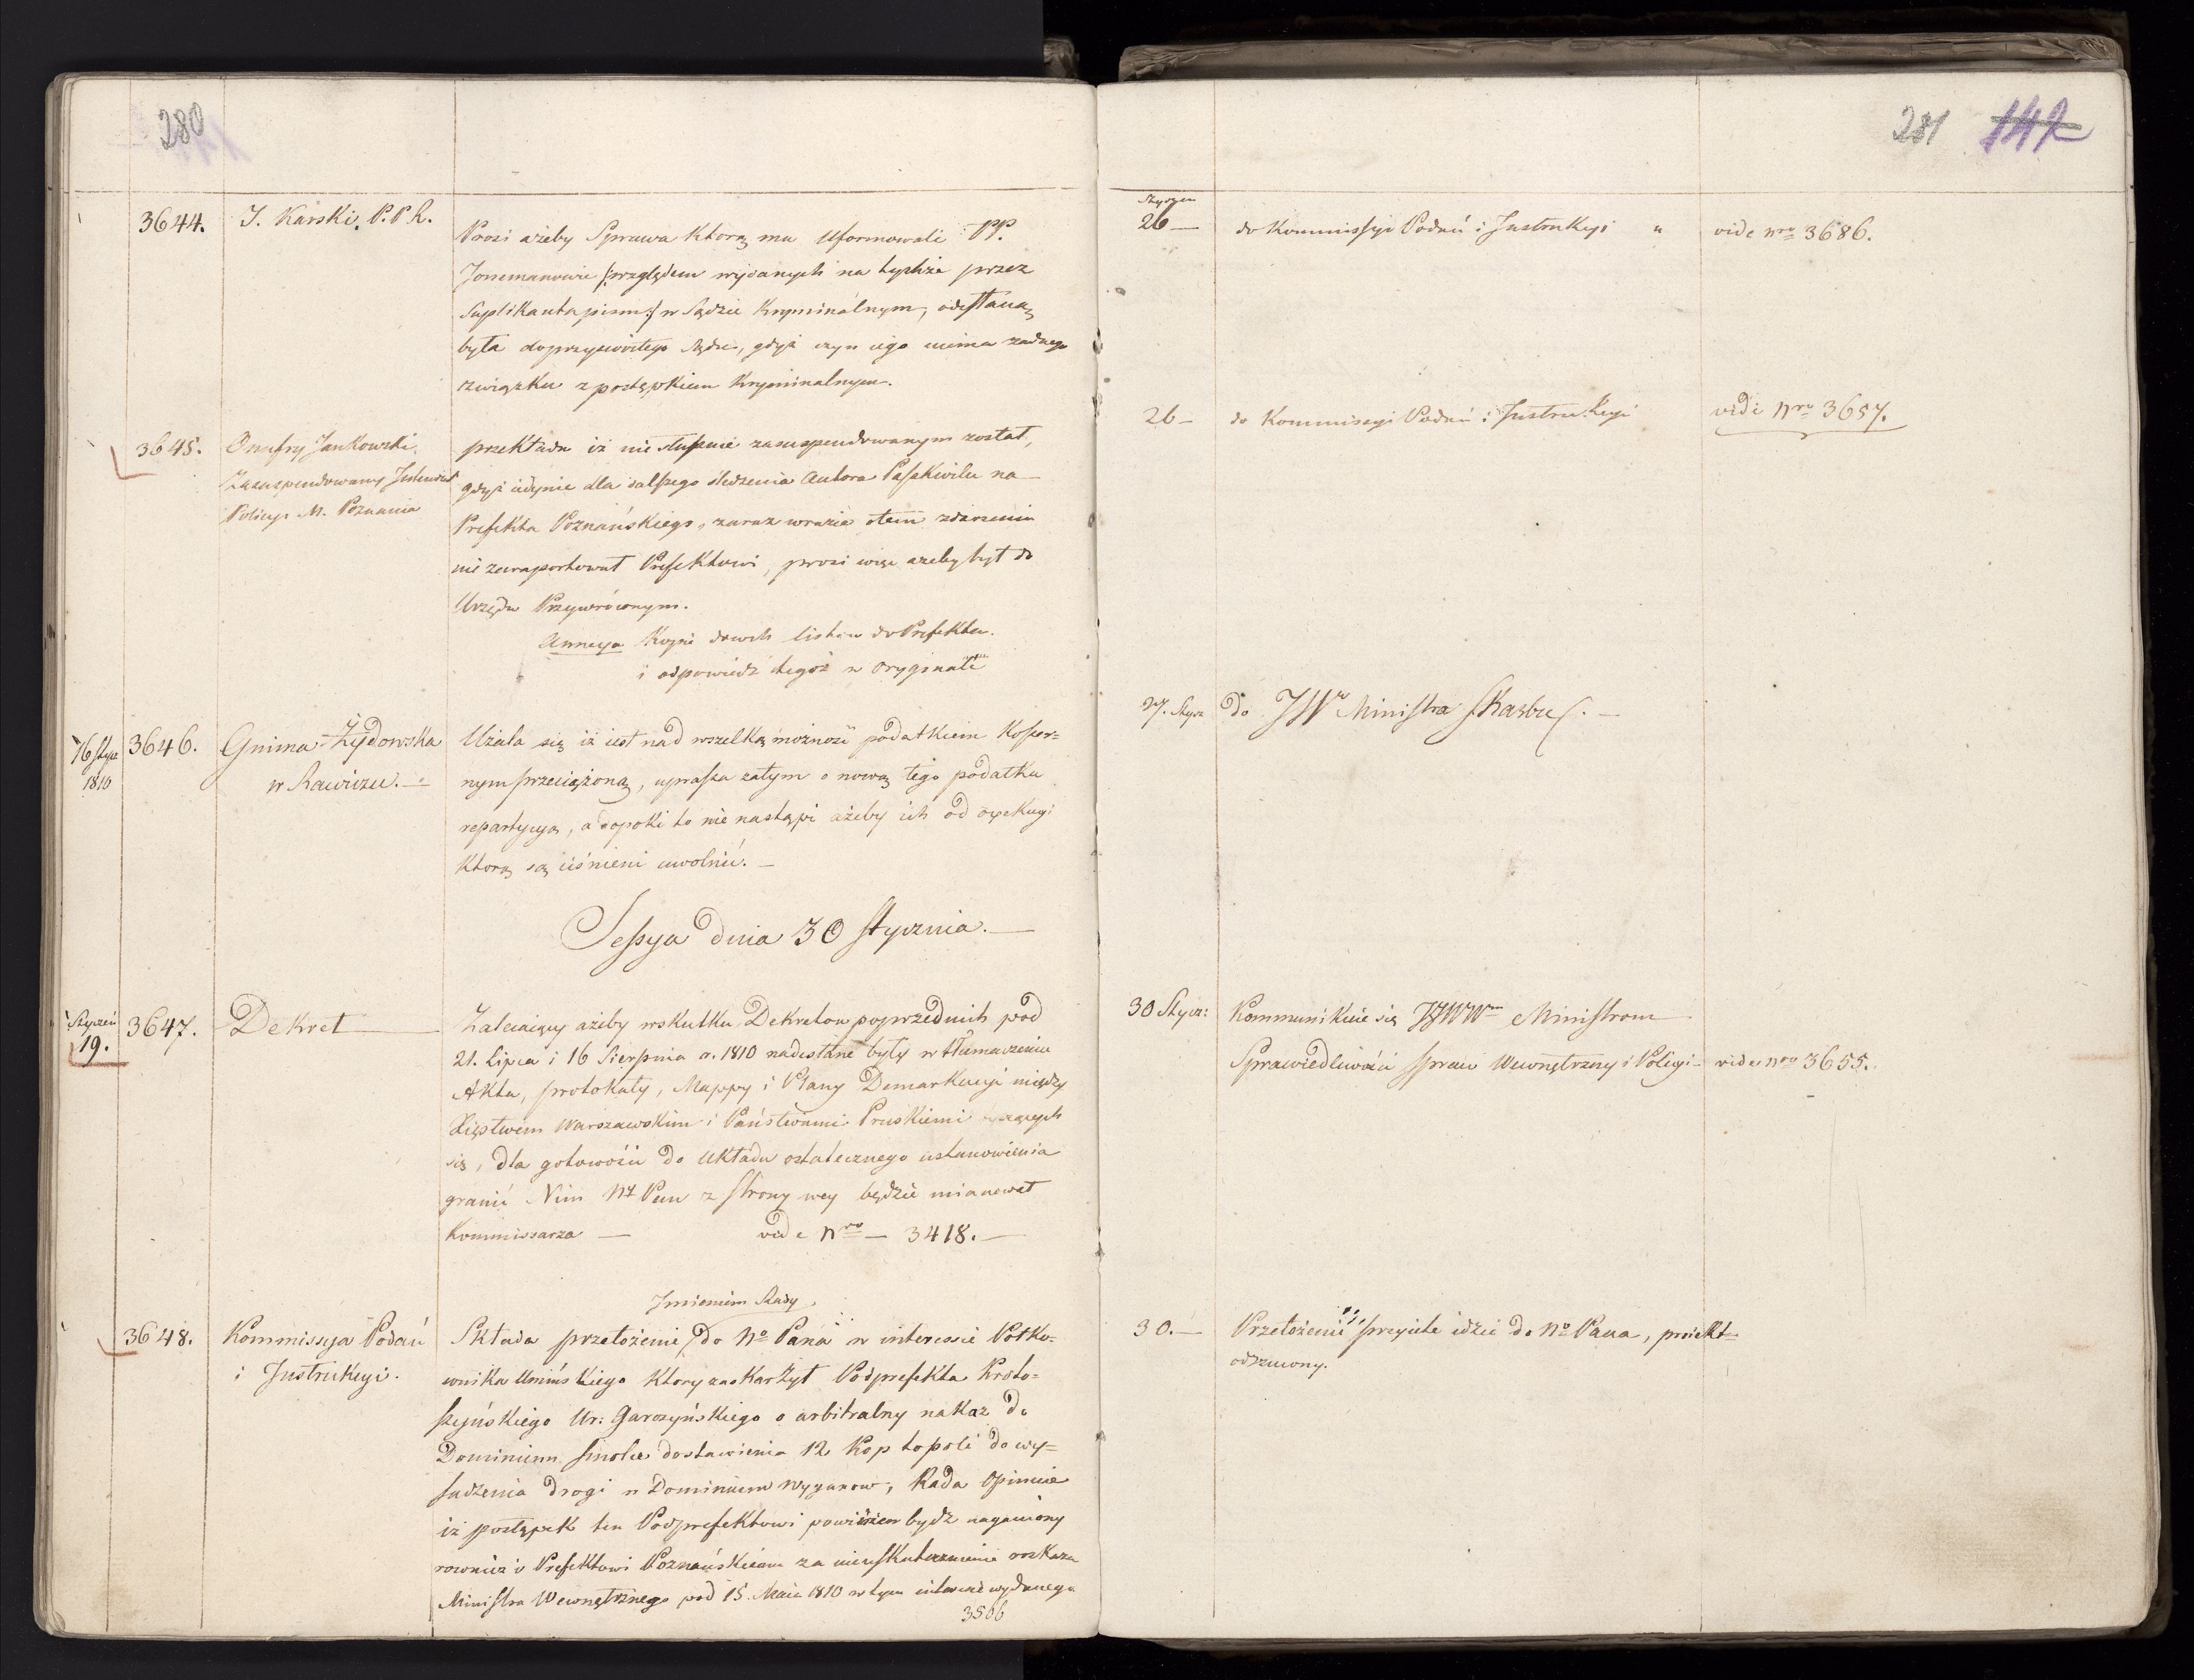 280
3644.
J. Karski. P. P. R.
Prosi ażeby Sprawa Ktorą mu Uformowali PP.
względem wydanych na tychże przez
Suplikanta pism :/ w Sądzie Kryminalnym, odesłaną
była do przyzwoitego Sądu, gdyż czyn iego niema żadnego
związku z postępkiem Kryminalnym.
3645.
Onufry Jankowski
Zasuspendowany Intendent
Policyi M. Poznania
przekłada iż nie słusznie zasuspendowanym został,
gdyż iedynie dla dalszego śledzenia Autora Paszkwilu na
Prefekta Poznańskiego, zaraz w razie o tem zdarzeniu
nie zaraportował Prefektowi, prosi więc ażeby był do
Urzędu Przywróconym.
Annexa Kopie dwoch listow do Prefekta.
i odpowiedź tegoż w Oryginale
16 Stycz
1810
3646.
Gmina Żydowska
w Rawiczu. —
Użala się iż iest nad wszelką możność podatkiem Koszer=
nym przeciążoną, uprasza zatym o nową tego podatku
repartycyą, a dopoki to nie nastąpi ażeby ich od exekucyi
Ktorą są uciśnieni uwolnić. —
Sessya dnia 30 Stycznia. —
Styczeń
19.
3647.
Dekret
Zalecaiący ażeby w skutku Dekretow poprzednich pod
21. Lipca i 16 Sierpnia r. 1810 nadesłane były w tłumaczeniu
Akta, protokuły, Mappy i Plany Demarkacyi między
Xięstwem Warszawskim i Państwami Pruskiemi
się, dla gotowości do Układu ostatecznego ustanowienia
granic Nim NJ Pan z strony swey będzie mianował
Kommissarza — vide Nro — 3418. —
3648.
Kommissya Podań
i Instrukcyi.
Imieniem Rady
Składa przełożenie do No Pana w interessie Połko=
wnika Umińskiego Ktory zaskarżył Podprefekta Kroto=
szyńskiego Ur: Garczyńskiego o arbitralny nakaz do
Dominium Smolic dostawienia 12 Kop topoli do wy=
sadzenia drogi w Dominium Wyganow, Rada Opiniuie
iż postępek ten Podprefektowi powinien bydź naganiony
rownież i Prefektowi Poznańskiemu za nieuskutecznienie rozkazu
Ministra Wewnętrznego pod 15. Maia 1810 w tym interesie wydanego
3506
281 142
Styczen
26 —
do Kommissyi Podań i Instrukcyi "
vide nro 3686.
26 —
do Kommissyi Podań i Instrukcyi
vide Nro 3657.
27. Stycz
do JWo Ministra Skarbu. —
30 Stycz:
Kommunikuie się JJWWm Ministrom
Sprawiedliwości Spraw Wewnętrzny i Policyi —
vide nro 3655.
30. —
Przełożenie przyięte idzie do No Pana, proiekt
odrzucony.